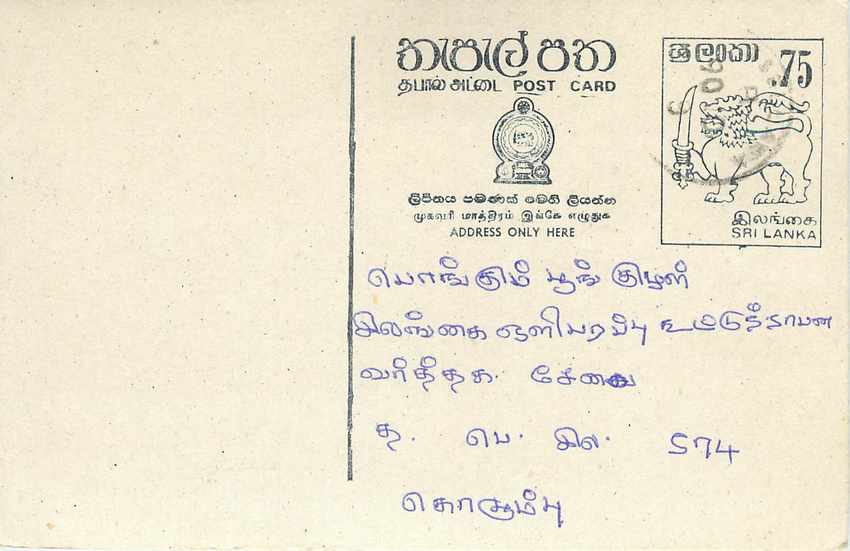 තැපැල් පත
தபால் அட்டை POST CARD
ශ්‍රී ලංකා
.75
ලිපිනය පමණක් මෙහි ලියන්න
முகவரி மாத்திரம் இங்கே எழுதுக
ADDRESS ONLY HERE
இலங்கை
SRI LANKA
பொங்கும் பூங் குழல்
இலங்கை ஒளிபரப்பு
வர்த்தக சேவை
த. பெ. இல. 574
கொழும்பு